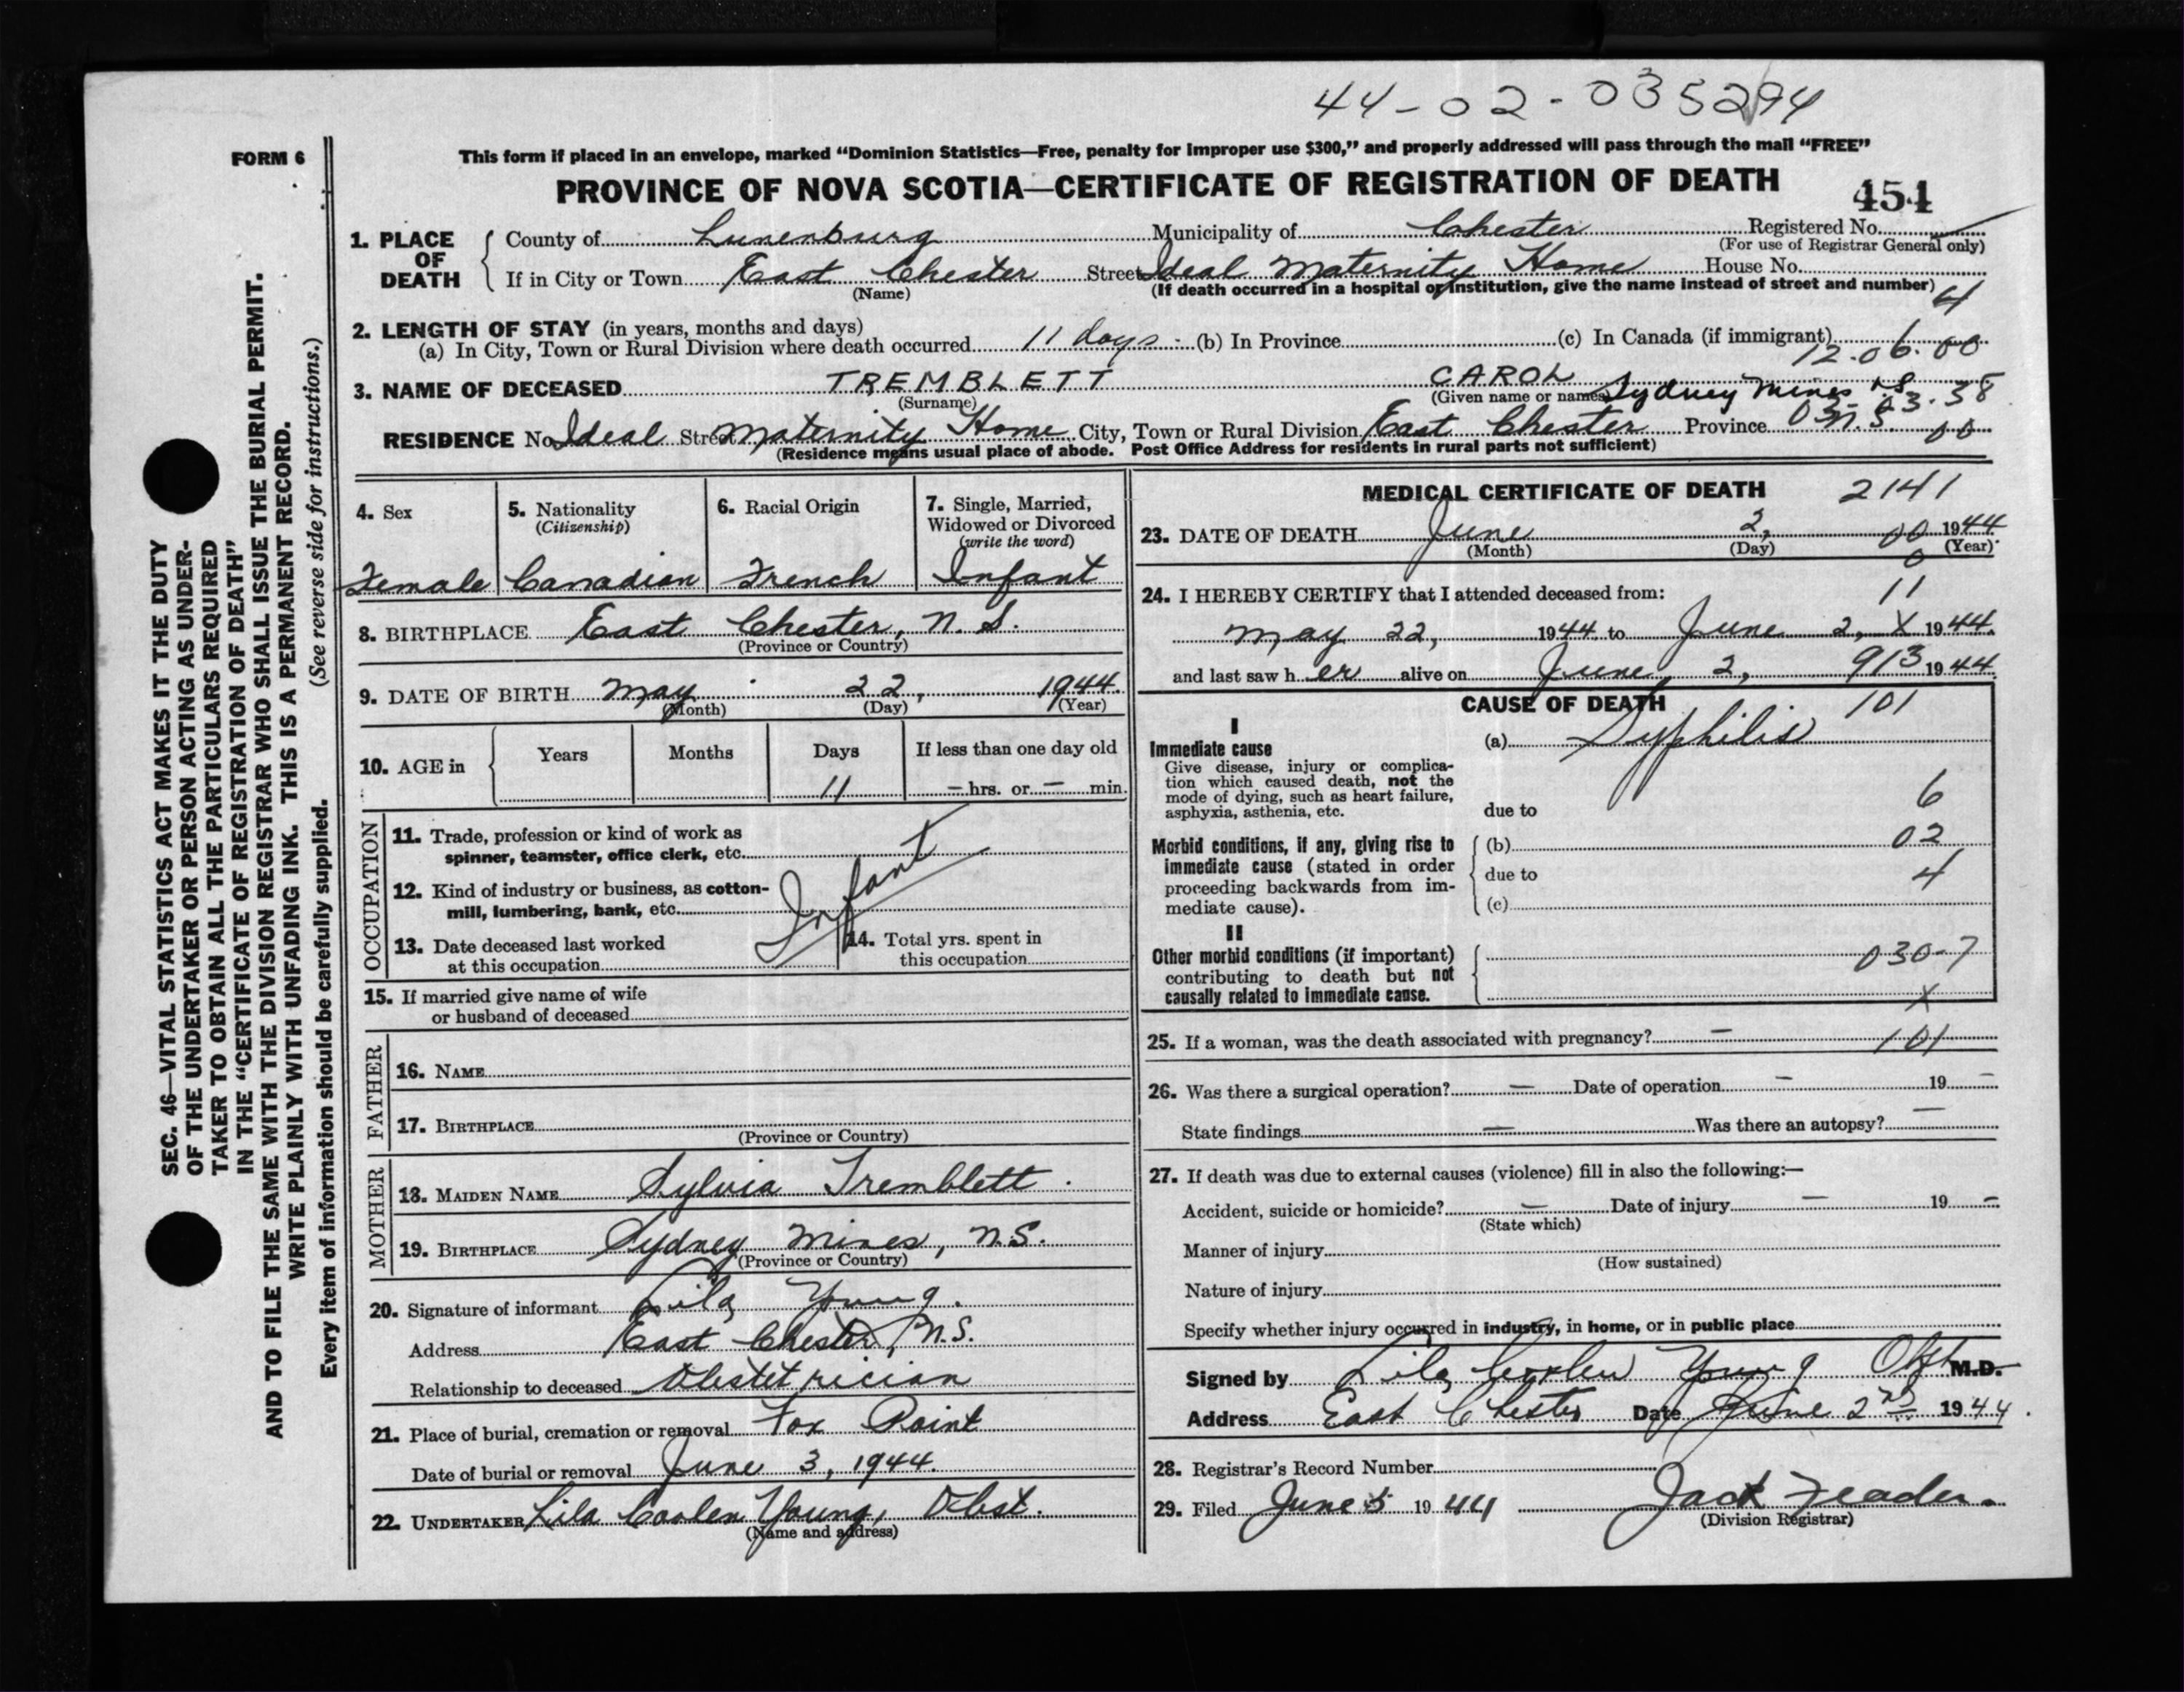 44-02-035294
FORM 6
This form if placed in an envelope, marked “Dominion Statistics—Free, penalty for improper use $300,” and properly addressed will pass through the mail “FREE”
PROVINCE OF NOVA SCOTIA—CERTIFICATE OF REGISTRATION OF DEATH
454
1. PLACE OF DEATH
County of Lunenburg Municipality of Chester Registered No.
(For use of Registrar General only)
If in City or Town East Chester Street Ideal Maternity Home House No.
(Name) (If death occurred in a hospital or institution, give the name instead of street and number)
4
2. LENGTH OF STAY (in years, months and days)
(a) In City, Town or Rural Division where death occurred 11 days - (b) In Province (c) In Canada (if immigrant)
12.06.00
3. NAME OF DECEASED TREMBLETT CAROL
(Surname) (Given name or names) Sydney Mines N.S.
03.03.38
RESIDENCE No. Ideal Street Maternity Home City, Town or Rural Division East Chester Province N.S. 00
(Residence means usual place of abode. Post Office Address for residents in rural parts not sufficient)
4. Sex
Female
5. Nationality
(Citizenship)
Canadian
6. Racial Origin
French
7. Single, Married,
Widowed or Divorced
(write the word)
Infant
8. BIRTHPLACE East Chester, N.S.
(Province or Country)
9. DATE OF BIRTH May 22, 1944.
(Month) (Day) (Year)
10. AGE in
Years Months Days If less than one day old
11 — hrs. or — min.
OCCUPATION
11. Trade, profession or kind of work as
spinner, teamster, office clerk, etc.
12. Kind of industry or business, as cotton-
mill, lumbering, bank, etc.
Infant
13. Date deceased last worked
at this occupation
14. Total yrs. spent in
this occupation
15. If married give name of wife
or husband of deceased
FATHER
16. NAME
17. BIRTHPLACE
(Province or Country)
MOTHER
18. MAIDEN NAME Sylvia Tremblett.
19. BIRTHPLACE Sydney Mines, N.S.
(Province or Country)
20. Signature of informant Lila Young.
Address East Chester, N.S.
Relationship to deceased Obstetrician
21. Place of burial, cremation or removal Fox Point
Date of burial or removal June 3, 1944.
22. UNDERTAKER Lila Coolen Young, Obst.
(Name and address)
MEDICAL CERTIFICATE OF DEATH 2141
23. DATE OF DEATH June 2, 00 1944
(Month) (Day) (Year)
0
24. I HEREBY CERTIFY that I attended deceased from: 11
May 22, 1944 to June 2, X 1944.
and last saw h er alive on June, 2, 913 1944
CAUSE OF DEATH 101
I
Immediate cause
Give disease, injury or complica-
tion which caused death, not the
mode of dying, such as heart failure,
asphyxia, asthenia, etc.
(a) Syphilis
due to 6
Morbid conditions, if any, giving rise to
immediate cause (stated in order
proceeding backwards from im-
mediate cause).
(b) 02
due to 4
(c)
II
Other morbid conditions (if important)
contributing to death but not
causally related to immediate cause.
030-7
X
25. If a woman, was the death associated with pregnancy? — 101
26. Was there a surgical operation? — Date of operation — 19 —
State findings — Was there an autopsy? —
27. If death was due to external causes (violence) fill in also the following:—
Accident, suicide or homicide? — Date of injury — 19 —
(State which)
Manner of injury
(How sustained)
Nature of injury
Specify whether injury occurred in industry, in home, or in public place
Signed by Lila Coolen Young Obst M.D.
Address East Chester Date June 2nd 1944.
28. Registrar's Record Number
29. Filed June 5 1944 Jack Feader.
(Division Registrar)
SEC. 46—VITAL STATISTICS ACT MAKES IT THE DUTY
OF THE UNDERTAKER OR PERSON ACTING AS UNDER-
TAKER TO OBTAIN ALL THE PARTICULARS REQUIRED
IN THE “CERTIFICATE OF REGISTRATION OF DEATH”
AND TO FILE THE SAME WITH THE DIVISION REGISTRAR WHO SHALL ISSUE THE BURIAL PERMIT.
WRITE PLAINLY WITH UNFADING INK. THIS IS A PERMANENT RECORD.
Every item of information should be carefully supplied. (See reverse side for instructions.)